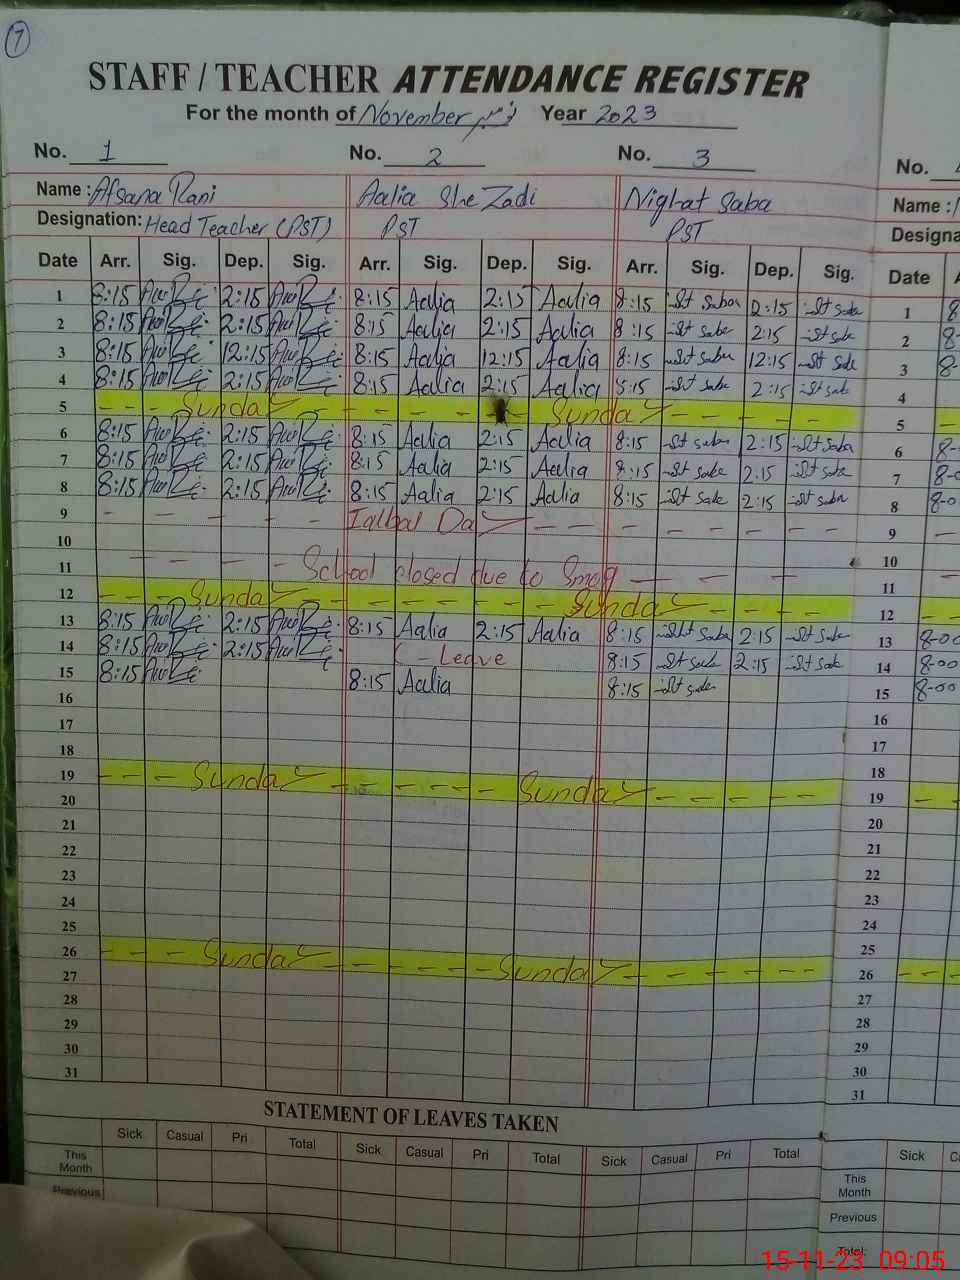 7
STAFF / TEACHER ATTENDANCE REGISTER
For the month of November نومبر Year 2023
No. 1 No. 2 No. 3 No.
Name : Afsana Rani Aalia She Zadi Nighat Saba Name :
Designation: Head Teacher (PST) PST PST Designa
Date Arr. Sig. Dep. Sig. Arr. Sig. Dep. Sig. Arr. Sig. Dep. Sig. Date A
1 8:15 2:15 8:15 Aalia 2:15 Aalia 8:15 2:15 1 8
2 8:15 2:15 8:15 Aalia 2:15 Aalia 8:15 2:15 2 8-
3 8:15 12:15 8:15 Aalia 12:15 Aalia 8:15 12:15 3 8-
4 8:15 2:15 8:15 Aalia 2:15 Aalia 8:15 2:15 4
5 - - - Sunday - - - - - Sunday - - - - 5 -
6 8:15 2:15 8:15 Aalia 2:15 Aalia 8:15 2:15 6 8-
7 8:15 2:15 8:15 Aalia 2:15 Aalia 8:15 2:15 7 8-0
8 8:15 2:15 8:15 Aalia 2:15 Aalia 8:15 2:15 8 8-0
9 - - - - - Iqlbal Day - - - - - - - 9 -
10 10
11 - - - - School closed due to Smog - - - 11 -
12 - - - Sunday - - - - - - Sunday - - - - 12 - -
13 8:15 2:15 8:15 Aalia 2:15 Aalia 8:15 2:15 13 8-00
14 8:15 2:15 - Leave 8:15 2:15 14 8-00
15 8:15 8:15 Aalia 8:15 15 8-00
16 16
17 17
18 18
19 - - - Sunday - - - - - Sunday - - - - - 19 -
20 20
21 21
22 22
23 23
24 24
25 25
26 - - - Sunday - - - - - Sunday - - - - - - 26 - -
27 27
28 28
29 29
30 30
31 31
STATEMENT OF LEAVES TAKEN
Sick Casual Pri Total Sick Casual Pri Total Sick Casual Pri Total Sick C
This Month This Month
Previous Previous
Total:
15-11-23 09:05